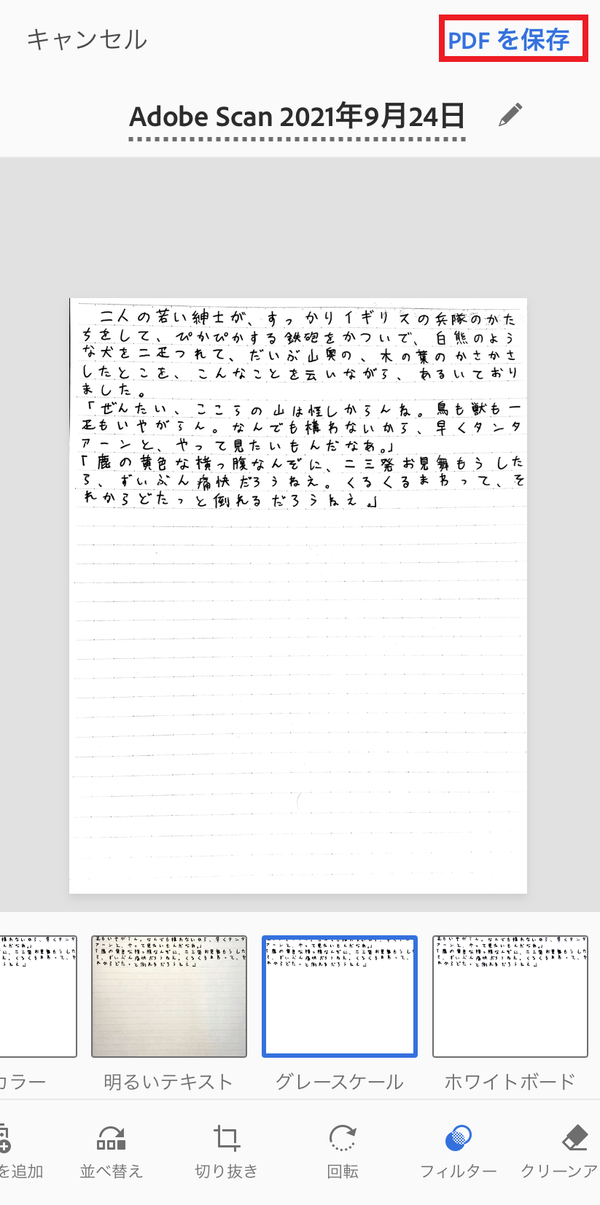 キャンセル
PDF を保存
Adobe Scan 2021年9月24日
二人の若い紳士が、すっかりイギリスの兵隊のかた
ちをして、ぴかぴかする鉄砲をかついで、白熊のよう
な犬を二疋つれて、だいぶ山奥の、木の葉のかさかさ
したとこを、こんなことを云いながら、あるいており
ました。
「ぜんたい、ここらの山は怪しからんね。鳥も獣も一
疋もいやがらん。なんでも構わないから、早くタンタ
アーンと、やって見たいもんだなあ。」
「鹿の黄色な横っ腹なんぞに、二三発お見舞もうした
ら、ずいぶん痛快だろうねえ。くるくるまわって、そ
れからどたっと倒れるだろうねえ。」
カラー
明るいテキスト
グレースケール
ホワイトボード
を追加
並べ替え
切り抜き
回転
フィルター
クリーンア